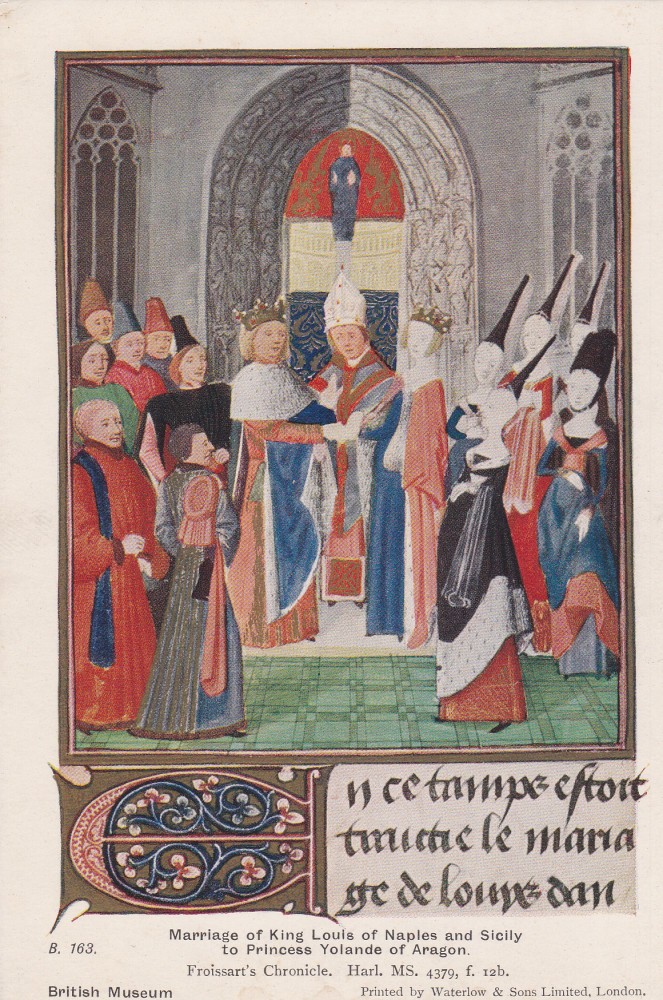 En ce tamps estoit
traictie le maria
ge de louys dan
Marriage of King Louis of Naples and Sicily
to Princess Yolande of Aragon.
B. 163.
Froissart's Chronicle. Harl. MS. 4379, f. 12b.
British Museum
Printed by Waterlow & Sons Limited, London.